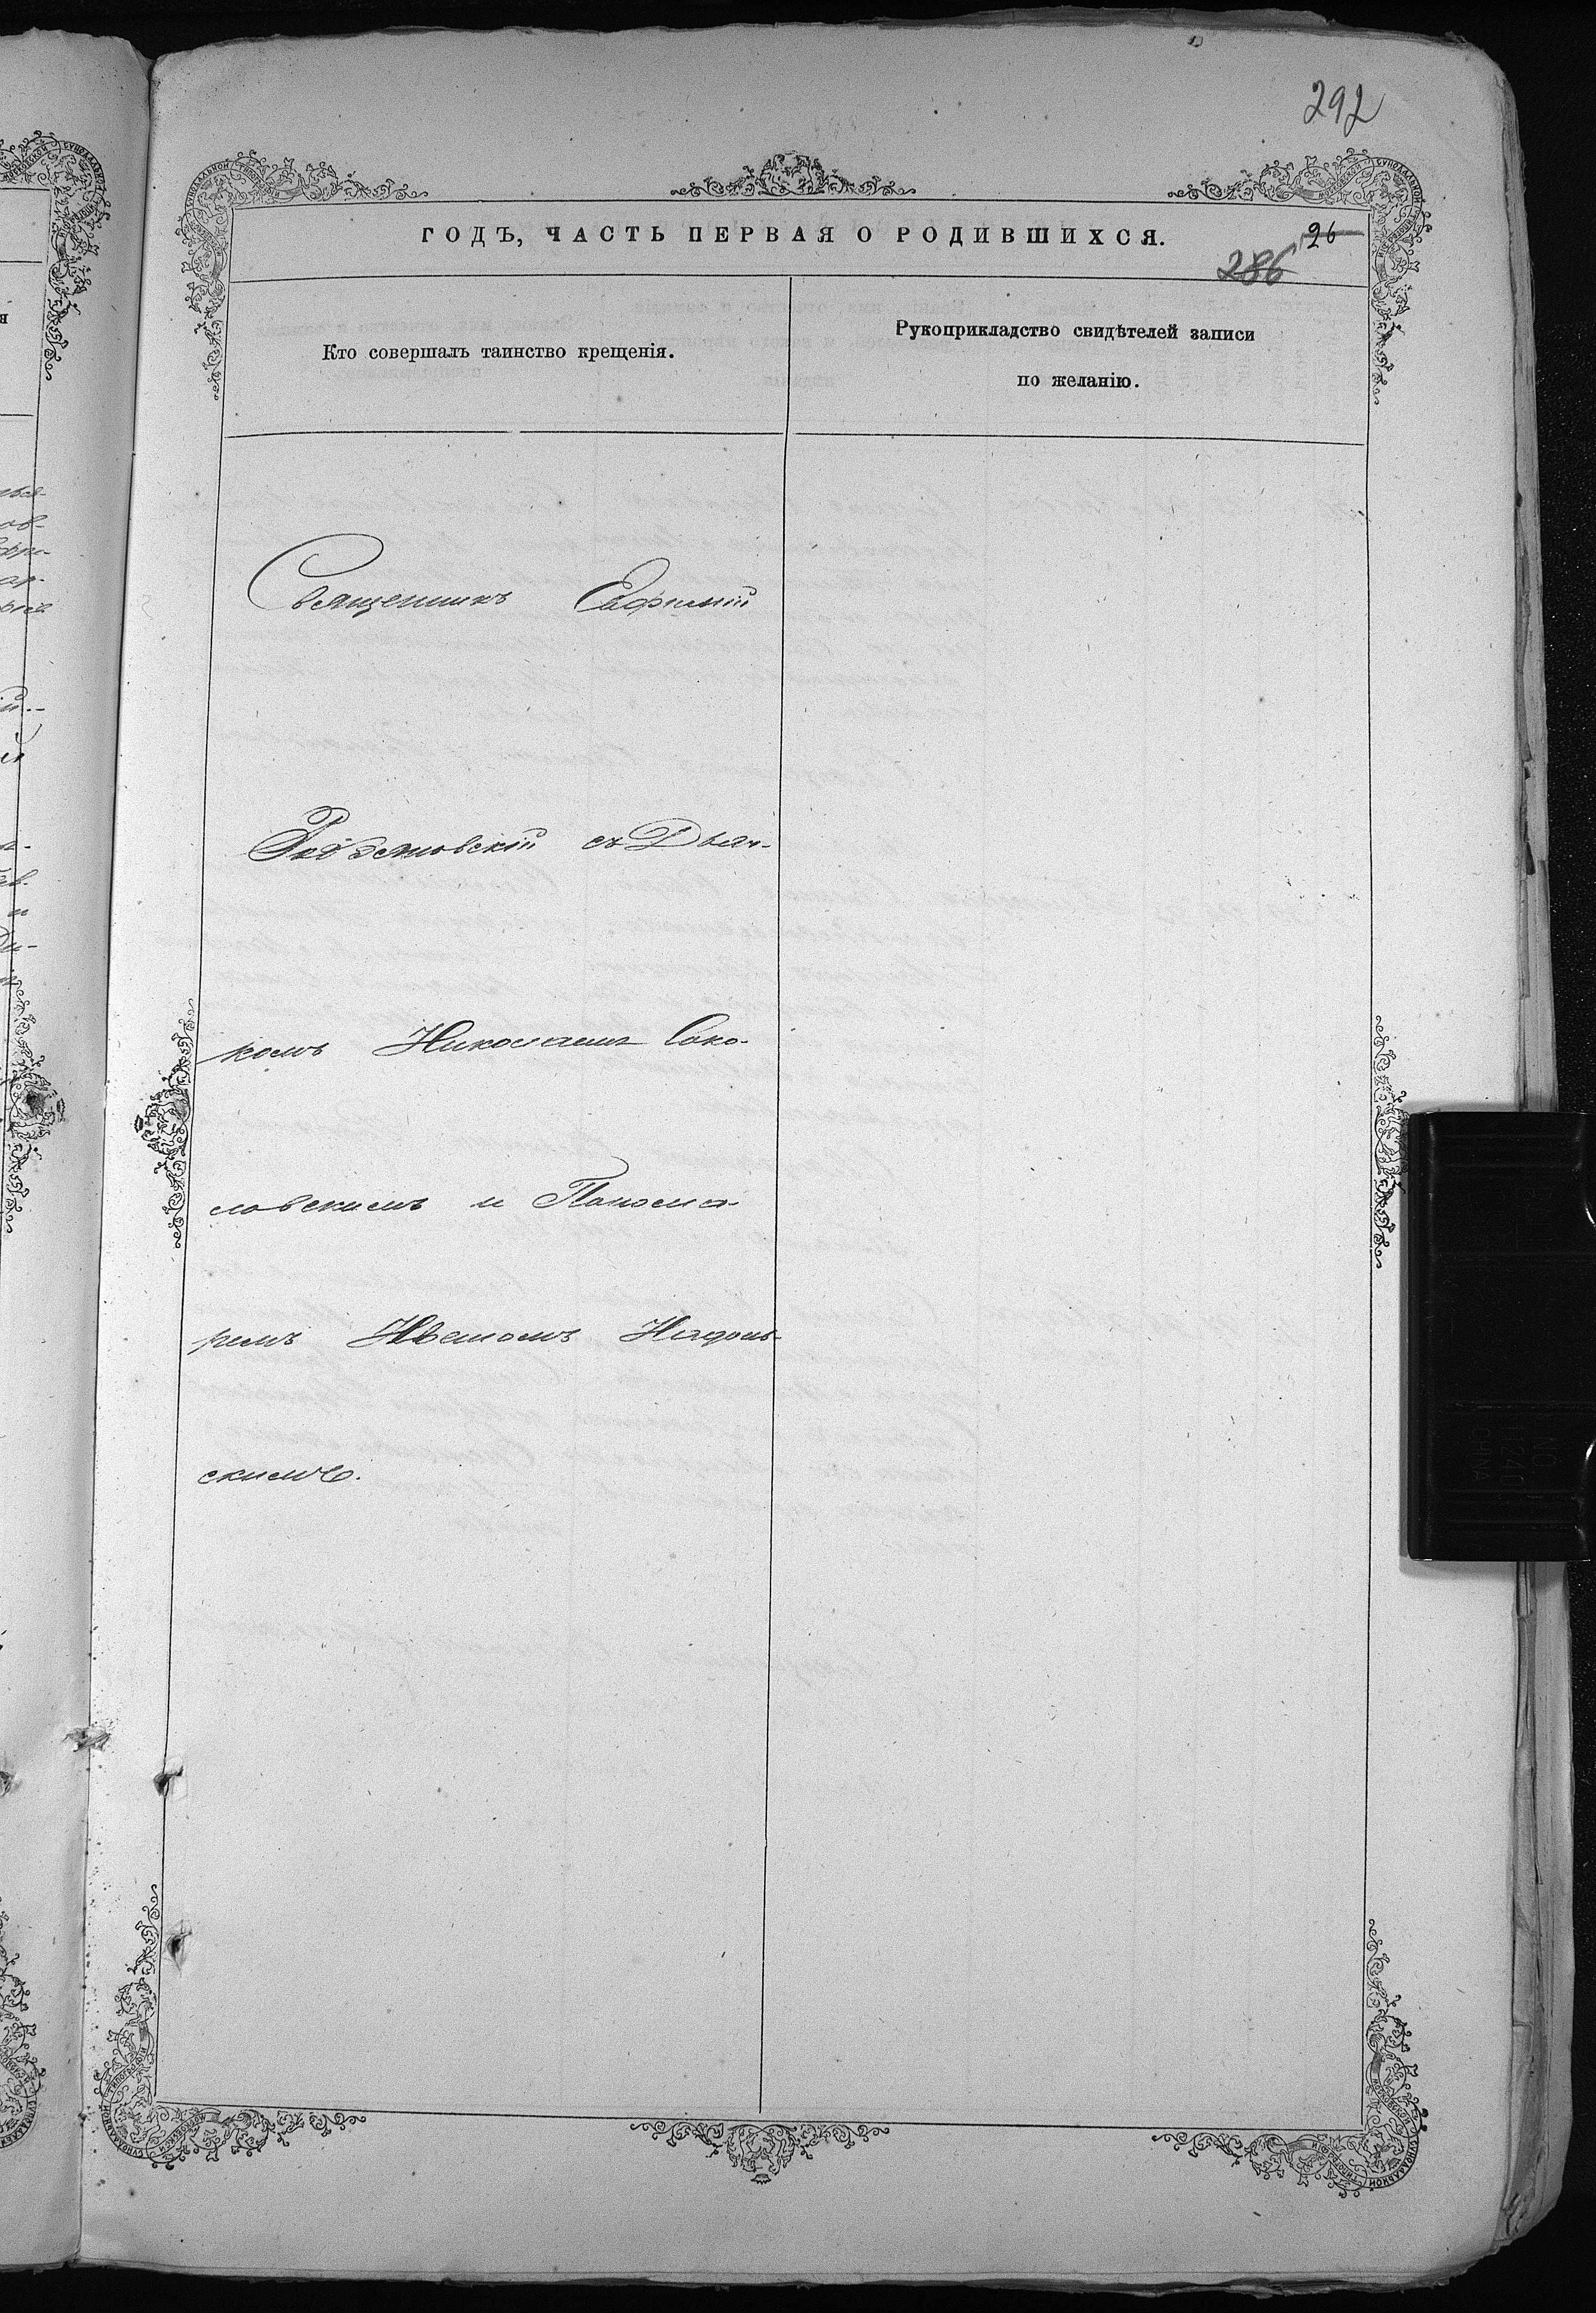 292
ГОДЪ, ЧАСТЬ ПЕРВАЯ О РОДИВШИХСЯ.
26
286
Кто совершалъ таинство крещенія.
Рукоприкладство свидѣтелей записи
по желанію.
Священникъ Евфимій
съ Дьяч-
комъ Николаемъ Соко-
ловскимъ и Понома-
ремъ Иваномъ
скимъ.